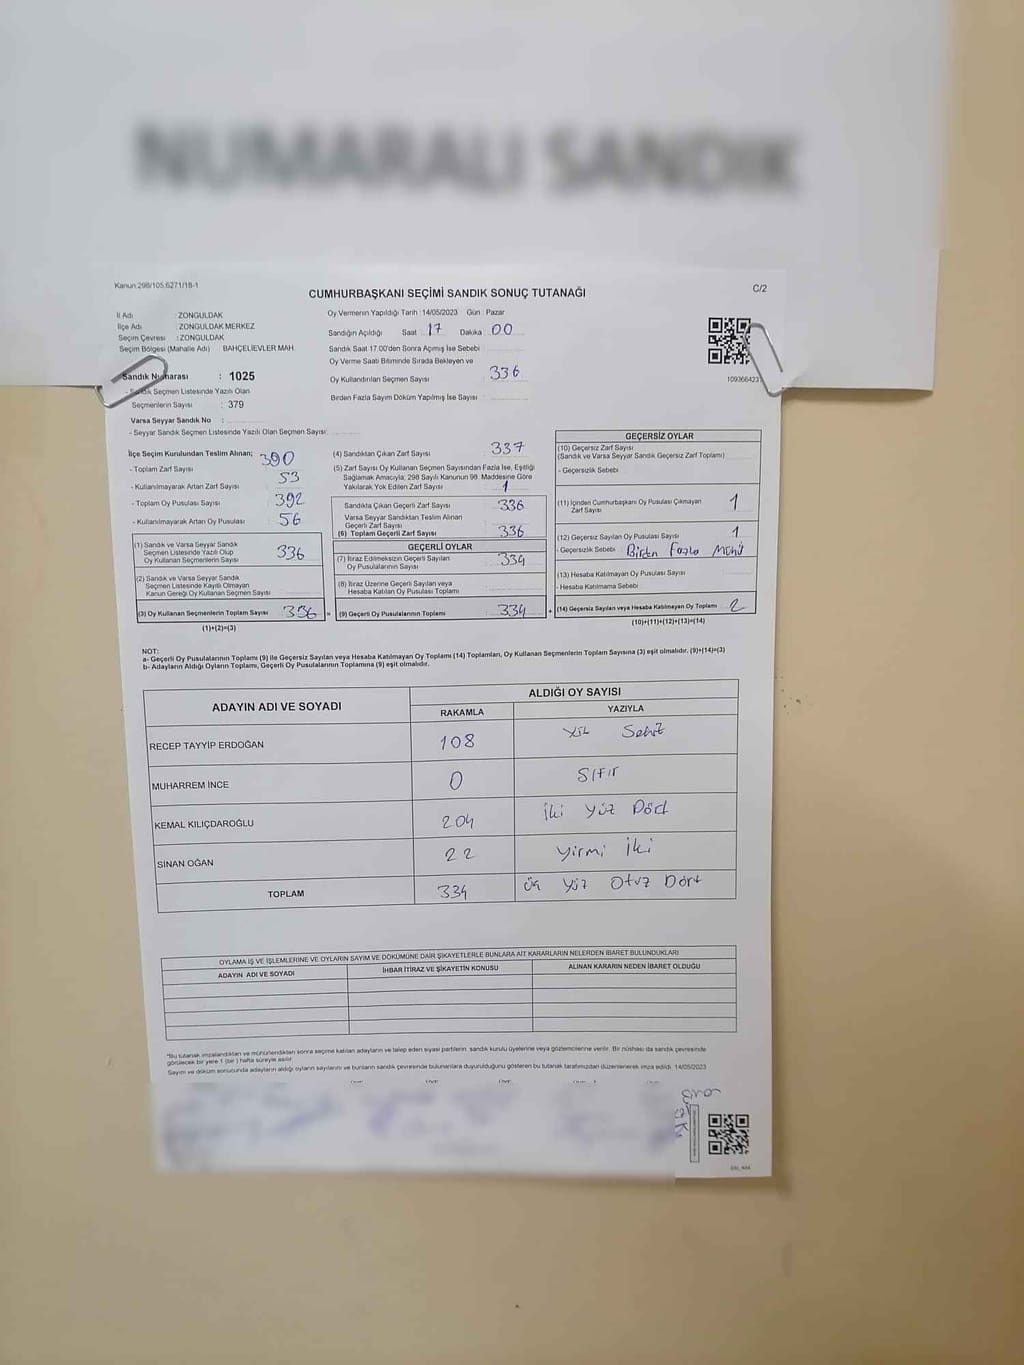 NUMARALI SANDIK
Kanun:298/105,6271/18-1
C/2
CUMHURBAŞKANI SEÇİMİ SANDIK SONUÇ TUTANAĞI
İl Adı : ZONGULDAK
İlçe Adı : ZONGULDAK MERKEZ
Seçim Çevresi : ZONGULDAK
Seçim Bölgesi (Mahalle Adı) BAHÇELİEVLER MAH.
Sandık Numarası : 1025
- Sandık Seçmen Listesinde Yazılı Olan
Seçmenlerin Sayısı : 379
Varsa Seyyar Sandık No :
- Seyyar Sandık Seçmen Listesinde Yazılı Olan Seçmen Sayısı:
Oy Vermenin Yapıldığı Tarih :14/05/2023 Gün :Pazar
Sandığın Açıldığı Saat : 17 Dakika : 00
Sandık Saat 17.00'den Sonra Açımış İse Sebebi :
Oy Verme Saati Bitiminde Sırada Bekleyen ve
Oy Kullandırılan Seçmen Sayısı : 336
Birden Fazla Sayım Döküm Yapılmış İse Sayısı :
109366423
İlçe Seçim Kurulundan Teslim Alınan;
- Toplam Zarf Sayısı : 390
- Kullanılmayarak Artan Zarf Sayısı : 53
- Toplam Oy Pusulası Sayısı : 392
- Kullanılmayarak Artan Oy Pusulası : 56
(1) Sandık ve Varsa Seyyar Sandık
Seçmen Listesinde Yazılı Olup
Oy Kullanan Seçmenlerin Sayısı : 336
(2) Sandık ve Varsa Seyyar Sandık
Seçmen Listesinde Kayıtlı Olmayan
Kanun Gereği Oy Kullanan Seçmen Sayısı :
(3) Oy Kullanan Seçmenlerin Toplam Sayısı : 336 =
(1)+(2)=(3)
(4) Sandıktan Çıkan Zarf Sayısı : 337
(5) Zarf Sayısı Oy Kullanan Seçmen Sayısından Fazla İse, Eşitliği
Sağlamak Amacıyla, 298 Sayılı Kanunun 98. Maddesine Göre
Yakılarak Yok Edilen Zarf Sayısı : 1
Sandıkta Çıkan Geçerli Zarf Sayısı : 336
Varsa Seyyar Sandıktan Teslim Alınan
Geçerli Zarf Sayısı :
(6) Toplam Geçerli Zarf Sayısı : 336
GEÇERLİ OYLAR
(7) İtiraz Edilmeksizin Geçerli Sayılan
Oy Pusulalarının Sayısı : 334
(8) İtiraz Üzerine Geçerli Sayılan veya
Hesaba Katılan Oy Pusulası Toplamı :
(9) Geçerli Oy Pusulalarının Toplamı : 334 +
GEÇERSİZ OYLAR
(10) Geçersiz Zarf Sayısı
(Sandık ve Varsa Seyyar Sandık Geçersiz Zarf Toplamı) :
- Geçersizlik Sebebi :
(11) İçinden Cumhurbaşkanı Oy Pusulası Çıkmayan
Zarf Sayısı : 1
(12) Geçersiz Sayılan Oy Pusulası Sayısı : 1
- Geçersizlik Sebebi : Birden Fazla Mühür
(13) Hesaba Katılmayan Oy Pusulası Sayısı :
- Hesaba Katılmama Sebebi :
(14) Geçersiz Sayılan veya Hesaba Katılmayan Oy Toplamı : 2
(10)+(11)+(12)+(13)=(14)
NOT:
a- Geçerli Oy Pusulalarının Toplamı (9) ile Geçersiz Sayılan veya Hesaba Katılmayan Oy Toplamı (14) Toplamları, Oy Kullanan Seçmenlerin Toplam Sayısına (3) eşit olmalıdır. (9)+(14)=(3)
b- Adayların Aldığı Oyların Toplamı, Geçerli Oy Pusulalarının Toplamına (9) eşit olmalıdır.
ADAYIN ADI VE SOYADI ALDIĞI OY SAYISI
RAKAMLA YAZIYLA
RECEP TAYYİP ERDOĞAN 108 Yüz Sekiz
MUHARREM İNCE 0 Sıfır
KEMAL KILIÇDAROĞLU 204 İki Yüz Dört
SİNAN OĞAN 22 Yirmi İki
TOPLAM 334 Üç Yüz Otuz Dört
OYLAMA İŞ VE İŞLEMLERİNE VE OYLARIN SAYIM VE DÖKÜMÜNE DAİR ŞİKAYETLERLE BUNLARA AİT KARARLARIN NELERDEN İBARET BULUNDUKLARI
ADAYIN ADI VE SOYADI İHBAR İTİRAZ VE ŞİKAYETİN KONUSU ALINAN KARARIN NEDEN İBARET OLDUĞU
*Bu tutanak imzalandıktan ve mühürlendikten sonra seçime katılan adayların ve talep eden siyasi partilerin sandık kurulu üyelerine veya gözlemcilerine verilir. Bir nüshası da sandık çevresinde
görülecek bir yere 1 (bir) hafta süreyle asılır.
Sayım ve döküm sonucunda adayların aldığı oyların sayılarını ve bunların sandık çevresinde bulunanlara duyurulduğunu gösteren bu tutanak tarafımızdan düzenlenerek imza edildi. 14/05/2023